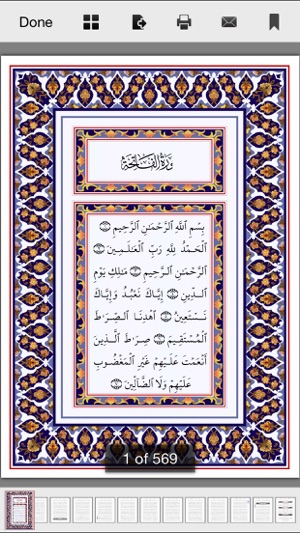 Done
سورة الفاتحة
بِسْمِ ٱللَّهِ ٱلرَّحْمَـٰنِ ٱلرَّحِيمِ ۝١
ٱلْحَمْدُ لِلَّهِ رَبِّ ٱلْعَـٰلَمِينَ ۝٢
ٱلرَّحْمَـٰنِ ٱلرَّحِيمِ ۝٣ مَـٰلِكِ يَوْمِ
ٱلدِّينِ ۝٤ إِيَّاكَ نَعْبُدُ وَإِيَّاكَ
نَسْتَعِينُ ۝٥ ٱهْدِنَا ٱلصِّرَٰطَ
ٱلْمُسْتَقِيمَ ۝٦ صِرَٰطَ ٱلَّذِينَ
أَنْعَمْتَ عَلَيْهِمْ غَيْرِ ٱلْمَغْضُوبِ
عَلَيْهِمْ وَلَا ٱلضَّآلِّينَ ۝٧
1 of 569